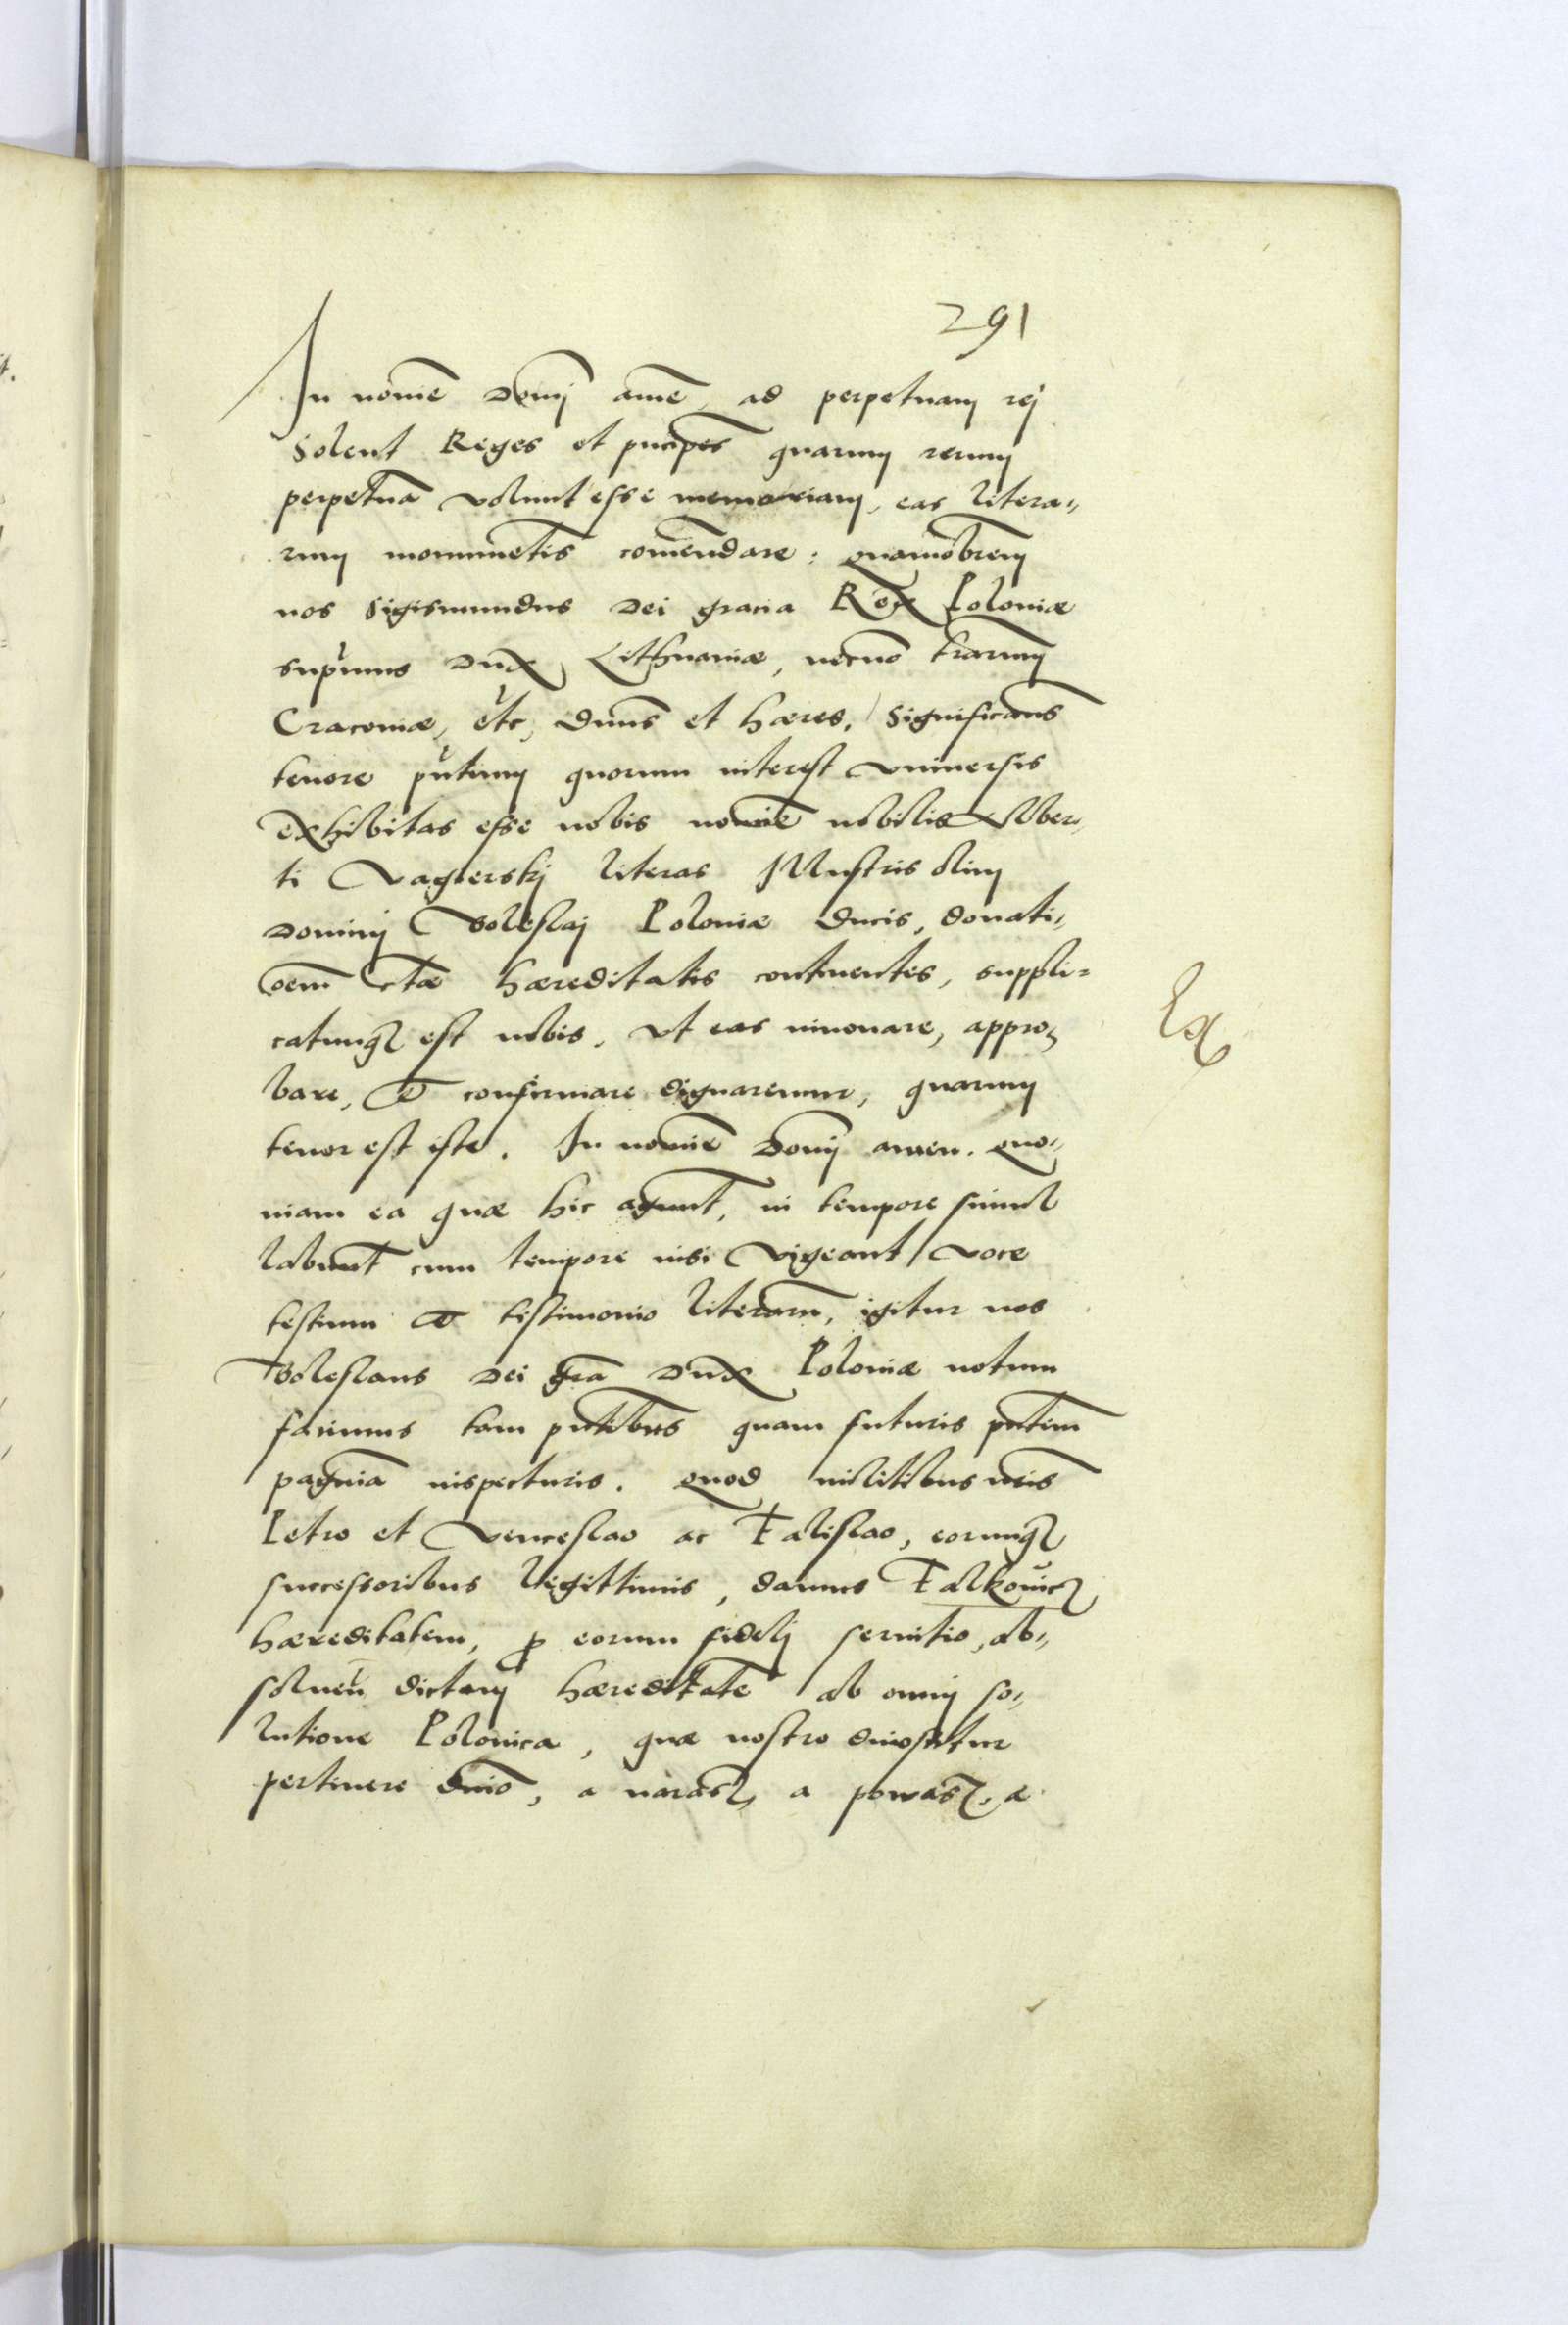 291
In nomīe Domj amē, ad perpetuam rej
Solent Reges et pncipes quarum rerum
perpetuā volunt esse memoriam, eas litera„
rum monumētis comēndare: quamobrem
nos Sigismundus Dei gracia Rex Poloniæ
supmus Dux Lithuaniæ, necnō trarum
Cracouiæ, etc, dnus et hæres, Significams
tenore pntium quorum interest vniuersis
exhibitas esse nobis nomīe nobilis Alber„
ti Vagierskj literas Illustris olim
Dominj Boleslaj Poloniæ Ducis, donati„
oem hæreditatis continentes, suppli=
catumq est nobis, vt eas innouare, appro„
bare, et confirmare dignaremur, quarum
tenor est iste. In nomīe Domj amen. Quo„
niam ea quæ hic agunt, in tempore simul
labunt cum tempore nisi vigeant voce
testium et testimonio literarm, igitur nos
Boleslaus Dei gra Dux Poloniæ notum
facimus tam pntibus quam futuris pntem
pagniā inspecturis. Quod militibus nris
Petro et Venceslao ac Falislao, eorumq
successoribus legittimis, damus Falkouicz
hæreditatem, p eorum fidelj seruitio, ab„
soluen dictam hæreditatē ab omnj so„
lutione Polonica, quæ nostro dinoscitur
pertinere dnio, a narasz, a powasz, a
Ex